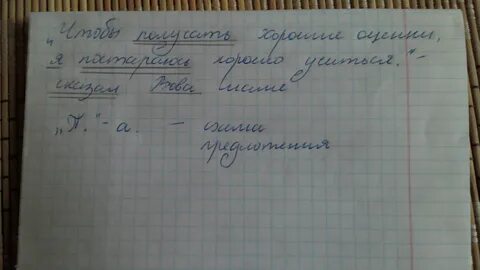 „Чтобы получать хорошие оценки,
я постараюсь хорошо учиться." -
сказал Вова маме
„П." - а. - схема
предложения